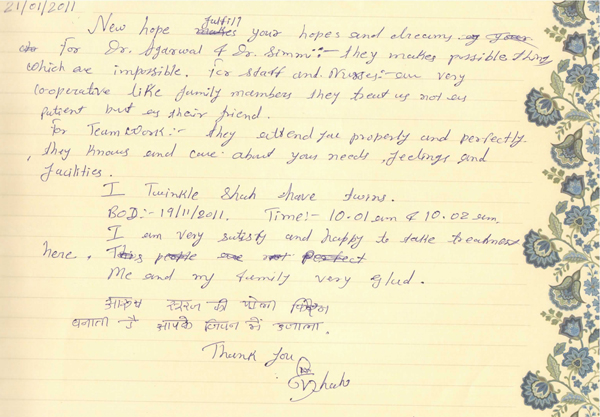 21/01/2011
New hope fulfill your hopes and dreams
for Dr. Agarwal & Dr. Simmi:- they makes possible thing
which are impossible. For staff and Nurses:- am very
cooperative like family members they treat us not as
patient but as their friend.
For Team work:- they attend you properly and perfectly
, they knows and care about your needs, feelings and
facilities.
I Twinkle Shah have twins.
BOD:- 19/11/2011. Time:- 10.01 am & 10.02 am.
I am very satisfy and happy to take treatment
here. This people are not perfect
Me and my family very glad.
सूरज की पहली किरण
बनाती है आपके जिवन में उजाला.
Thank you
Shah